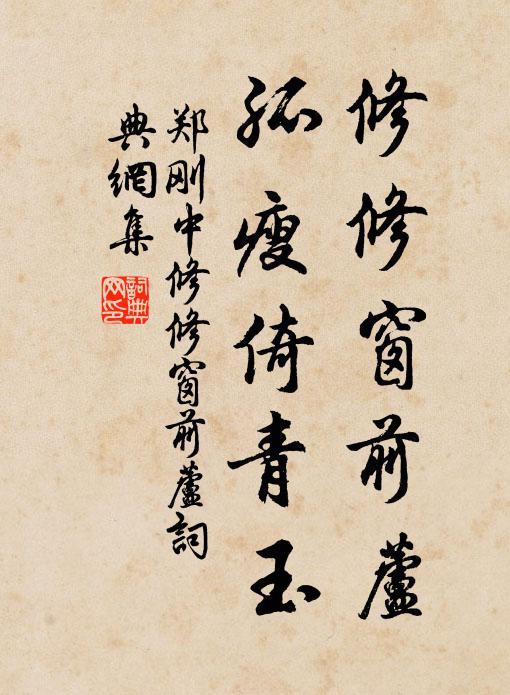 修修窗前蘆
孤瘦倚青玉
郑刚中修修窗前蘆詞
典網集
詞典网印